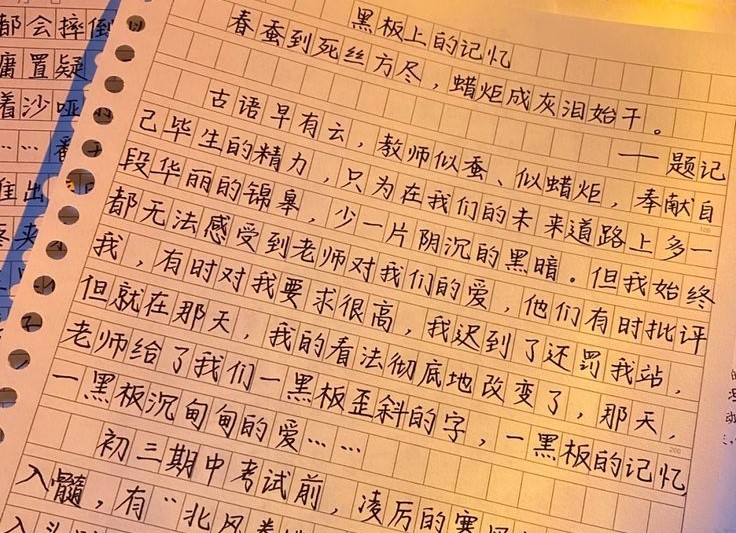 黑板上的记忆
春蚕到死丝方尽，蜡炬成灰泪始干。
——题记
古语早有云，教师似蚕、似蜡炬，奉献自
己毕生的精力，只为在我们的未来道路上多一
段华丽的锦皋，少一片阴沉的黑暗。但我始终
都无法感受到老师对我们的爱，他们有时批评
我，有时对我要求很高，我迟到了还罚我站，
但就在那天，我的看法彻底地改变了，那天，
老师给了我们一黑板歪斜的字，一黑板的记忆，
一黑板沉甸甸的爱……
初三期中考试前，凌厉的寒风
入髓，有“北风卷
都会摔倒
庸置疑
着沙哑